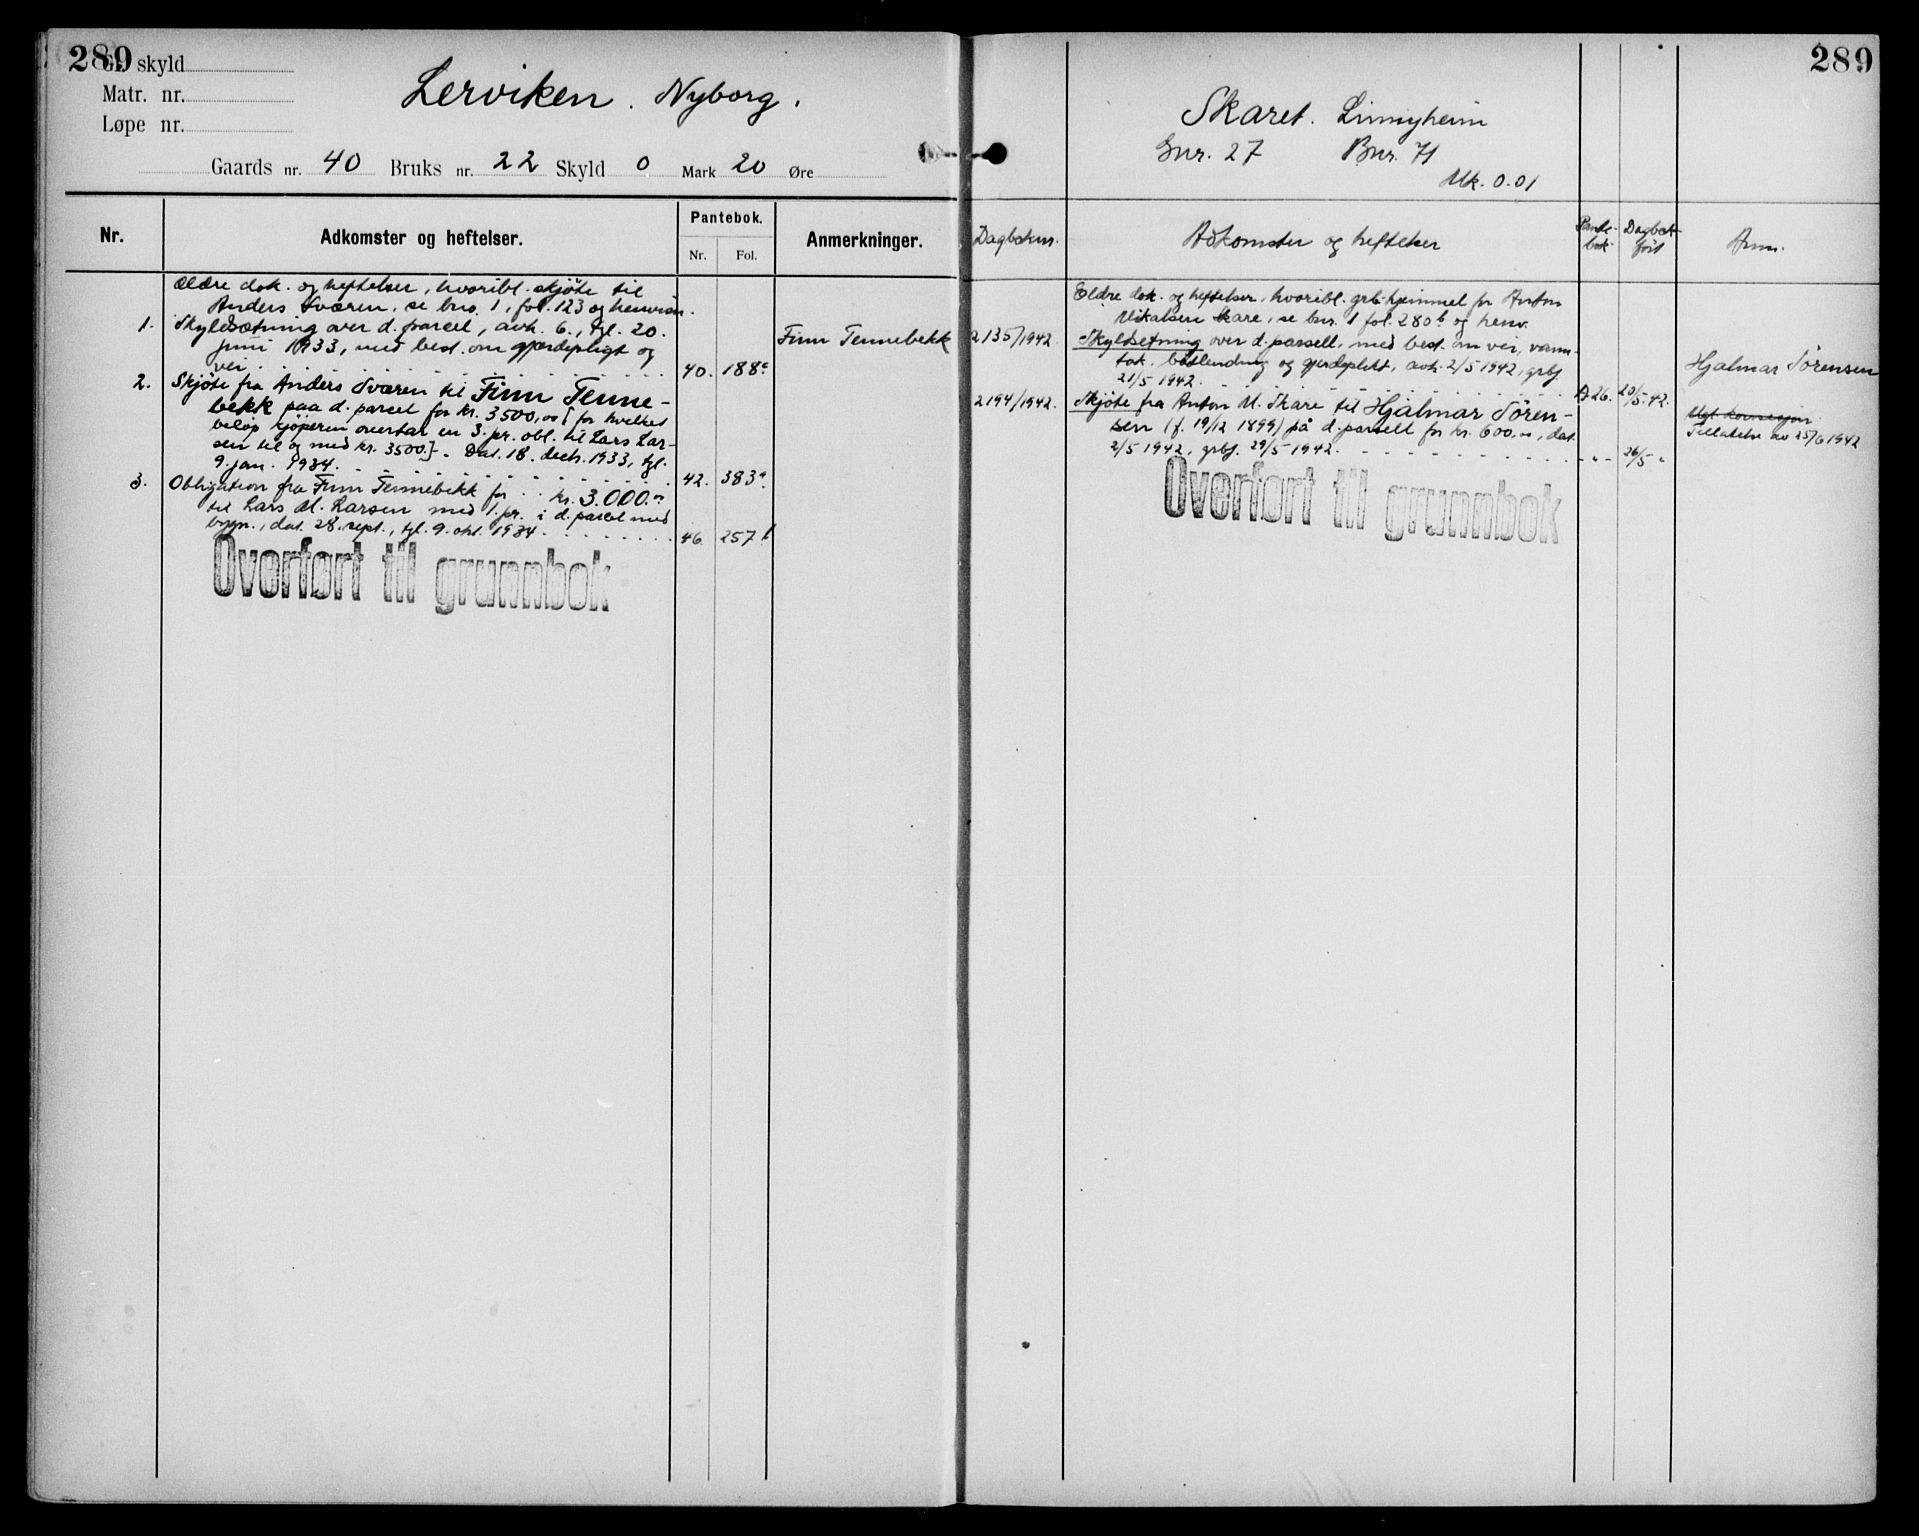 289
Gl. skyld
Matr. nr.
Løpe nr.
Lerviken. Nyborg.
Gaards nr. 40 Bruks nr. 22 Skyld 0 Mark 20 Øre
Nr.
Adkomster og heftelser.
Pantebok.
Nr. Fol.
Anmerkninger.
Ældre dok. og heftelser, hvoribl. skjøte til
Anders Sværen, se bno. 1, fol. 123 og henvisn.
1. Skyldsætning over d. parcel, avh. 6., tgl. 20.
juni 1933, med best. om gjerdepligt og
vei 40. 188
Finn Tennebekk
2. Skjøte fra Anders Sværen til Finn Tenne-
bekk paa d. parcel for kr. 3500,00 [for hvilket
beløp kjøperen overtar en 3. pr. obl. til Lars Lar-
sen til og med kr. 3500.]. Dat. 18. decb. 1933, tgl.
9. jan. 1934. 42. 383
3. Obligation fra Finn Tennebekk for kr. 3.000.
til Lars M. Larsen med 1. pr. i d. parcel med
bygn., dat. 28. sept., tgl. 9. okt. 1934. 46. 257
Overført til grunnbok
289
Skaret.
Gnr. 27 Bnr. 71
Mk. 0.01
Dagboknr.
Adkomster og heftelser
Pante-
bok.
Dagbok-
ført
Anm.
Eldre dok. og heftelser, hvoribl. grb. hjemmel for Anton
Mikalsen Skare, se bnr. 1 fol. 280 b og henv.
2135/1942. Skyldsetning over d. parsell, med best. om vei, vann-
tak, båtlending og gjerdeplikt, avh. 2/5 1942, grbf.
21/5 1942. A 26. 20/5-42.
Hjalmar Sørensen
2194/1942. Skjøte fra Anton M. Skare til Hjalmar Søren-
sen (f. 19/12 1899) på d. parsell for kr. 600,00, dat.
2/5 1942, grbf. 29/5 1942. - " - 26/5 "
Tillatelse av 25/6 1942
Overført til grunnbok